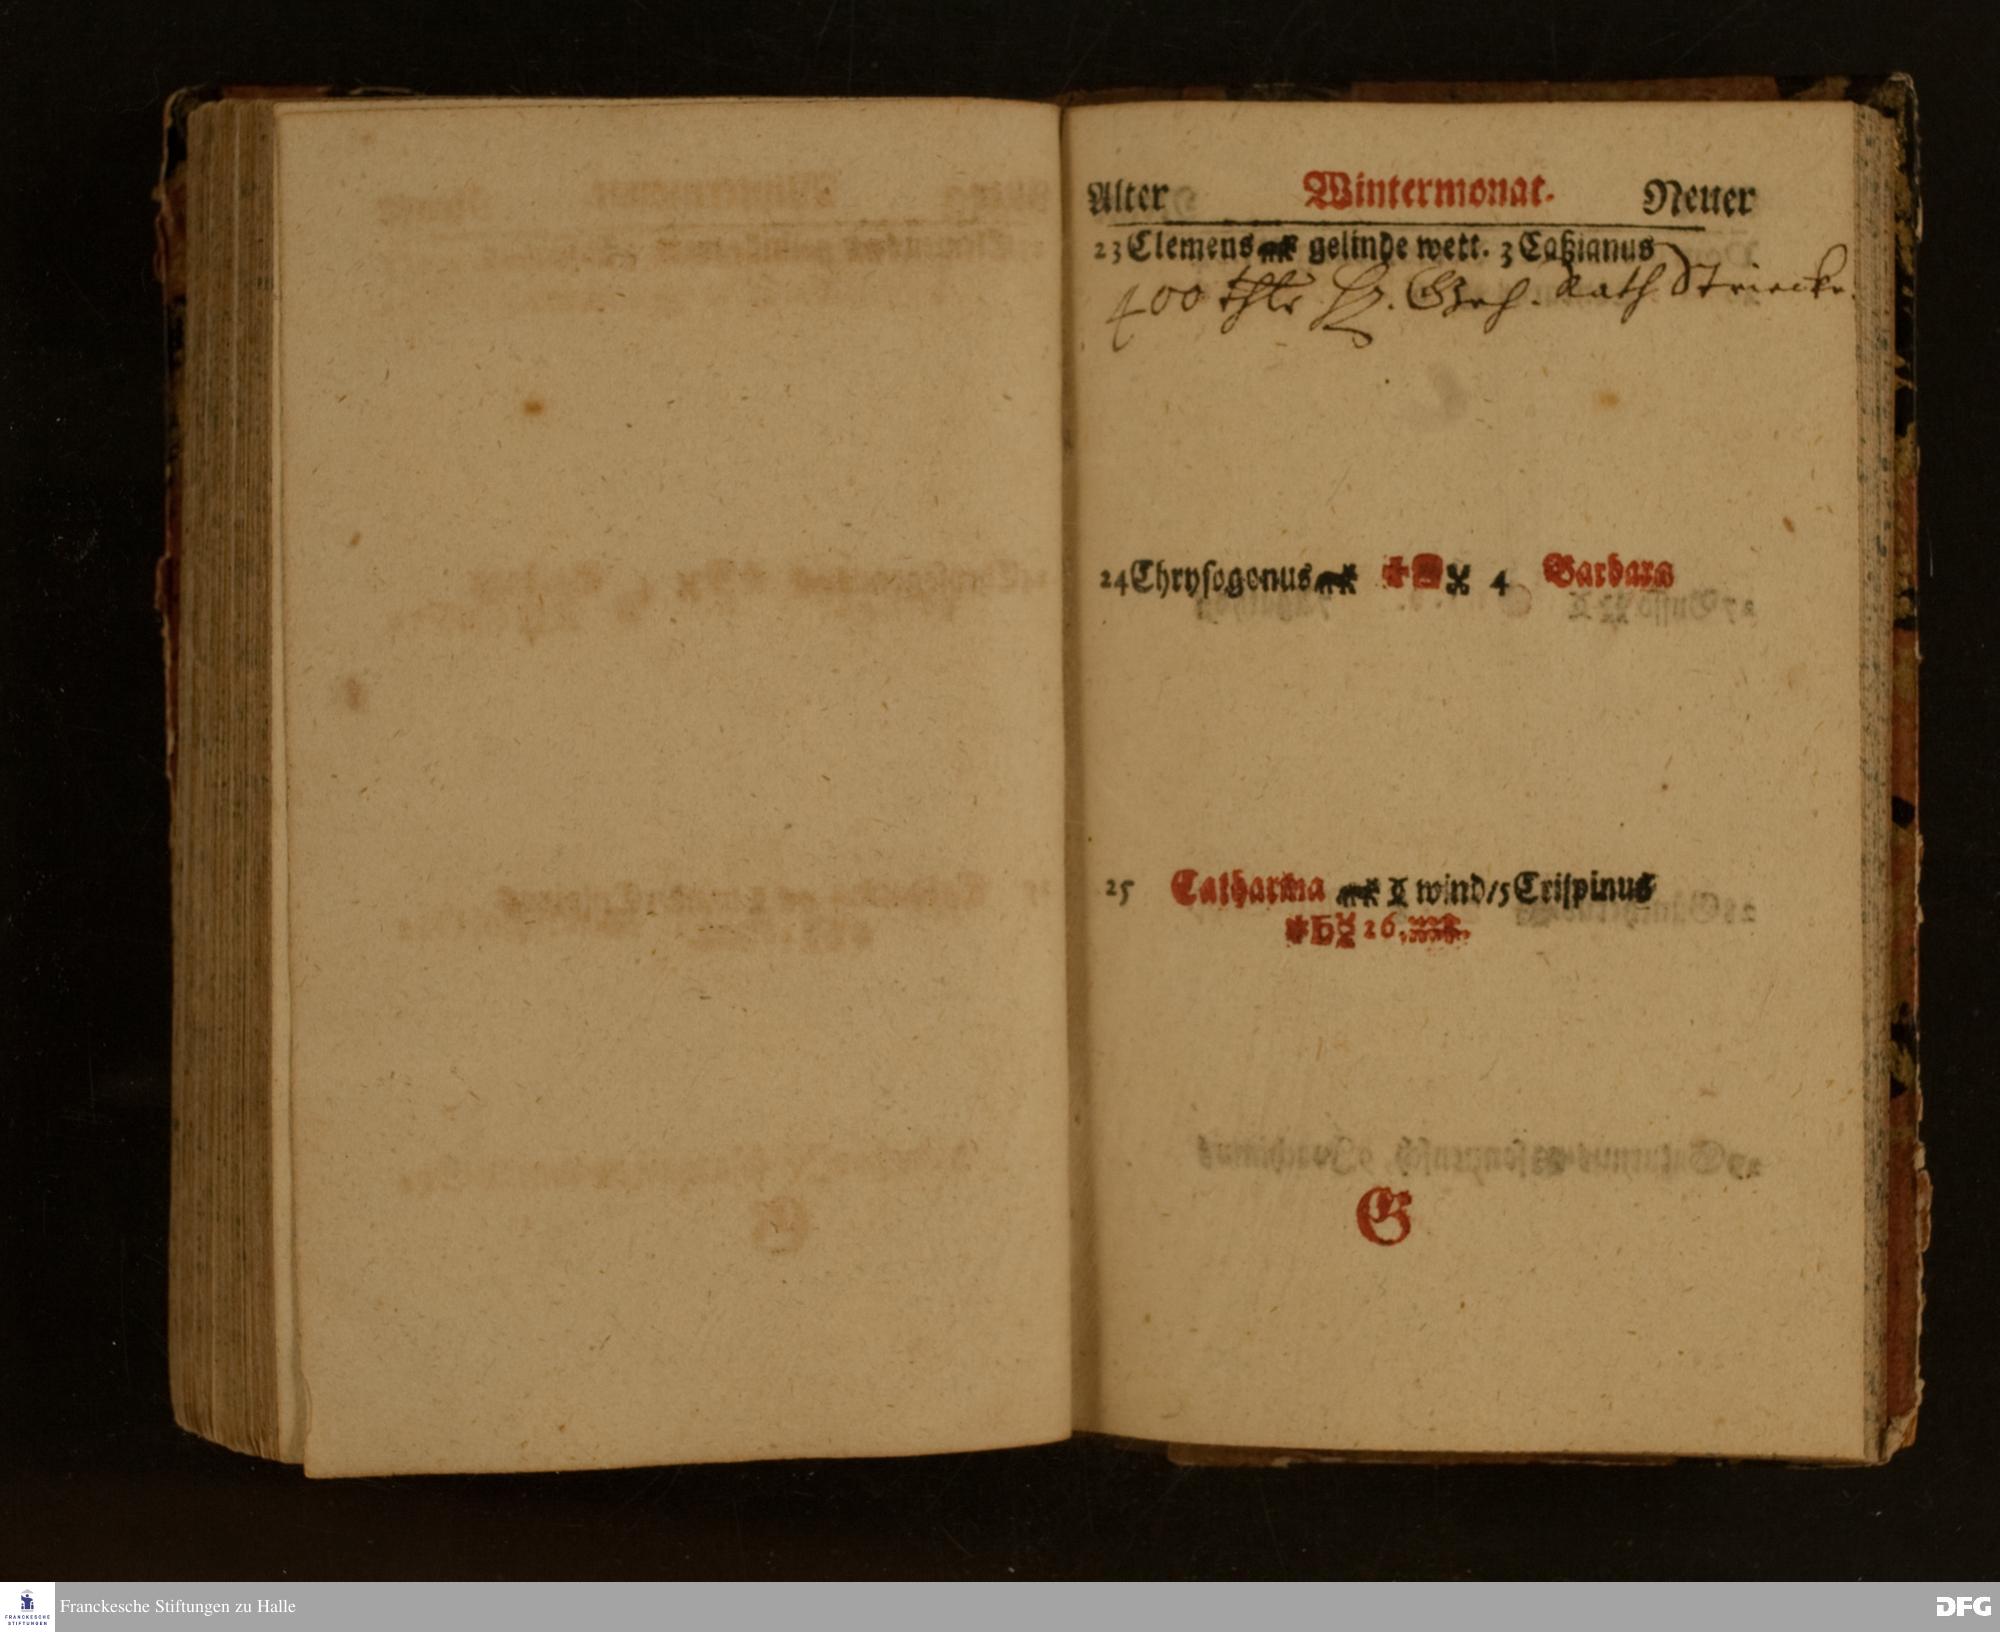 Alter Wintermonat. Neuer
23 Clemens gelinde wett. 3 Caßianus
400 thlr H. Geh. Rath Striecke.
24 Chrysogonus 4 Barbara
25 Catharina wind/ 5 Crispinus
26.
G
Franckesche Stiftungen zu Halle
FRANCKESCHE STIFTUNGEN
DFG